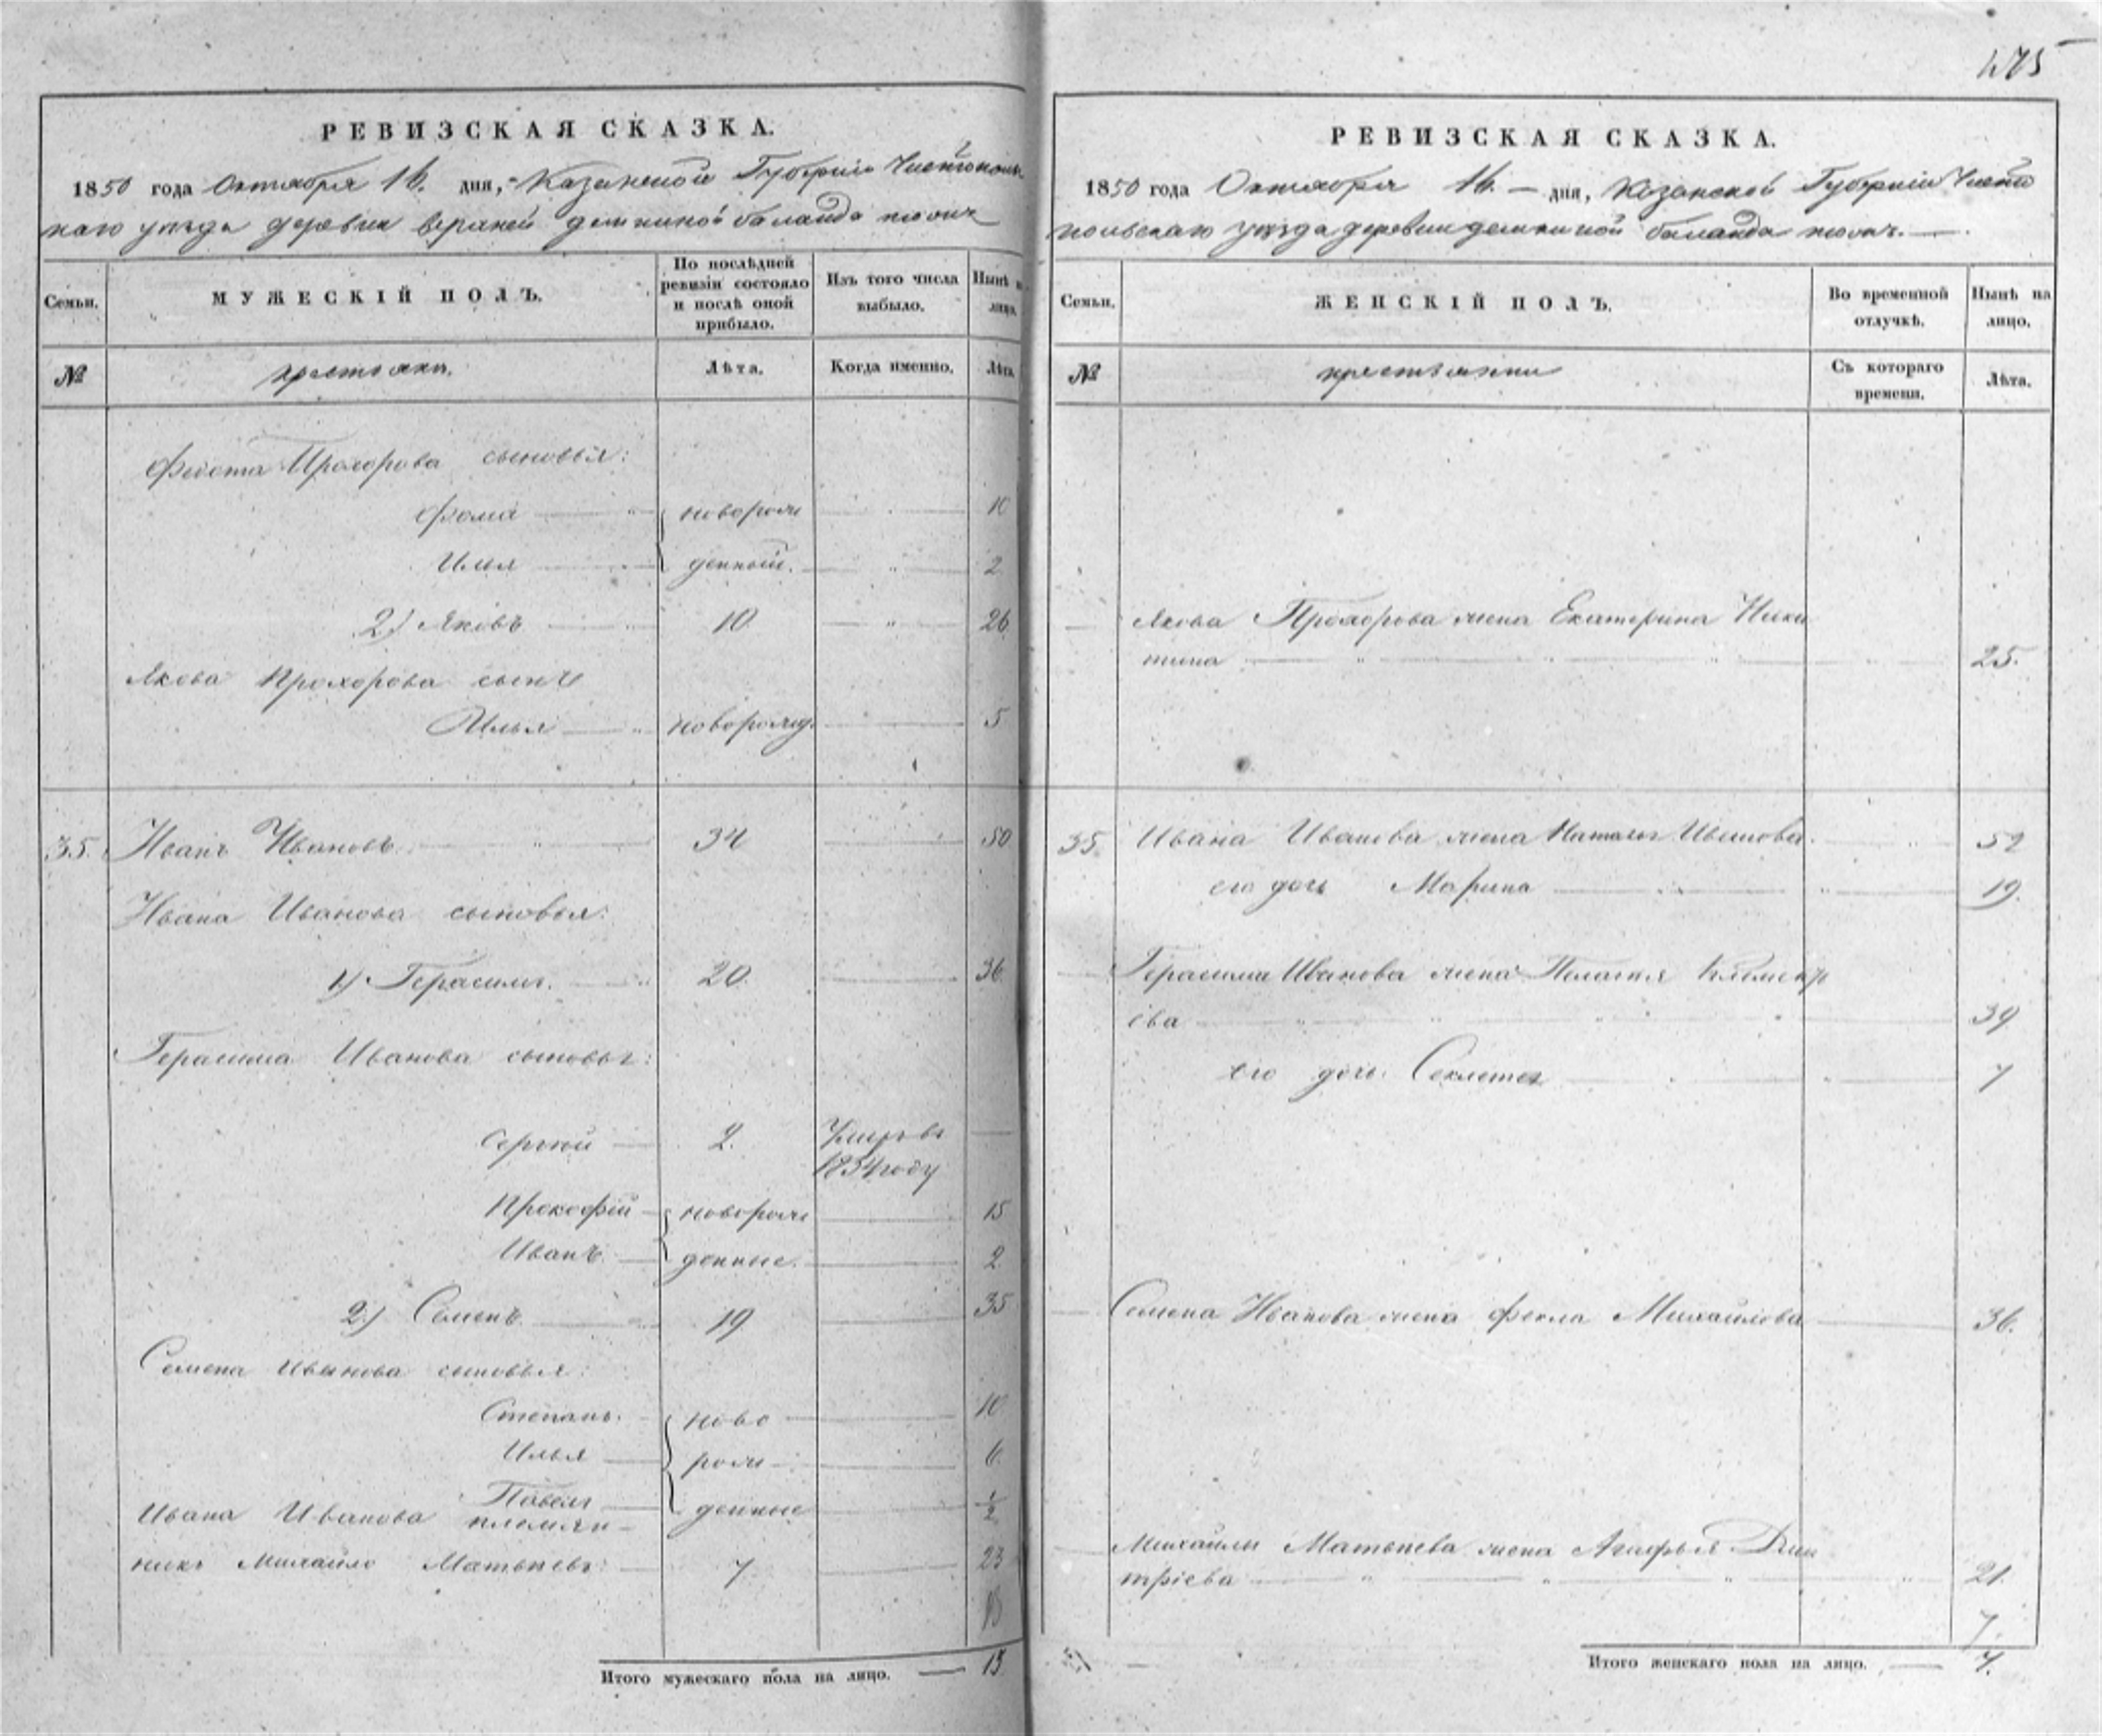 475
РЕВИЗСКАЯ СКАЗКА.
1850 года Октября 16. дня, Казанской Губернiи Чистополь
скаго уѣзда деревни верхней
МУЖЕСКІЙ ПОЛЪ.
Семьи.
По послѣдней ревизіи состояло и послѣ оной прибыло.
Изъ того числа выбыло.
Нынѣ на лицо.
№
крестьяне.
Лѣта.
Когда именно.
Лѣта.
Федота Прохорова сыновья:
Фома новорож 10
Илья денный. 2
2) Яковъ 10. 26.
Якова Прохорова сынъ
Илья новорожд. 5
35. Иванъ Ивановъ 34 50
Ивана Иванова сыновья:
1) Герасимъ. 20. 36
Герасима Иванова сыновья:
Сергей 2. Умеръ въ
1834 году
Прокофій новорож 15
Иванъ денные. 2
2) Семенъ 19 35
Семена Иванова сыновья:
Степанъ. ново 10
Илья рож 6
Павелъ денные ½
Ивана Иванова племян
никъ Михайло Матвѣевъ 7 23
13
Итого мужескаго пола на лицо. 13
РЕВИЗСКАЯ СКАЗКА.
1850 года Октября 16. дня, Казанской Губерніи Чисто
польскаго уѣзда деревни
Семьи.
ЖЕНСКІЙ ПОЛЪ.
Во временной отлучкѣ.
Нынѣ на лицо.
№
крестьянки
Съ котораго времени.
Лѣта.
Якова Прохорова жена Екатерина Ники
тина 25.
35. Ивана Иванова жена Наталья Иванова. 52
его дочь Марина 19.
Герасима Иванова жена Пелагея
ева 39
его дочь Секлетея 7
Семена Иванова жена Фекла Михайлова 36.
Михайлы Матвѣева жена Агафья Дми
тріева 21.
7.
Итого женскаго пола на лицо. 7.